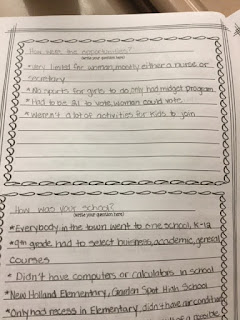 How were the opportunities?
(Write your question here)
*Very limited for woman, mostly either a nurse or
secretary
*No sports for girls to do, only had midget program
*Had to be 21 to vote, women could vote
*Weren't a lot of activities for kids to join
How was your school?
(Write your question here)
*Everybody in the town went to one school, K-12
*9th grade had to select business, academic, general
courses
*Didn't have computers or calculators in school
*New Holland Elementary, Garden Spot High School
*Only had recess in Elementary, didn't have air condit